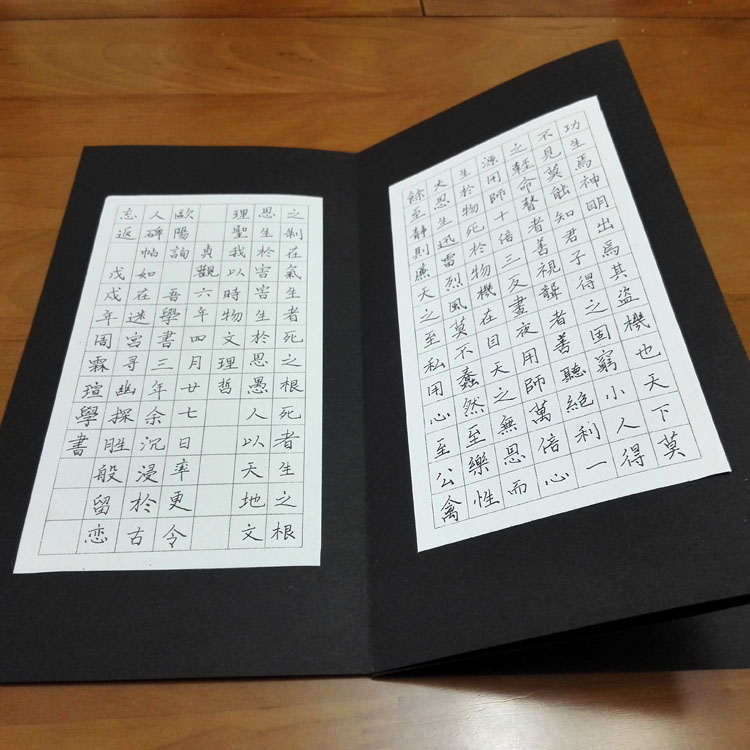 功生焉神明出焉其盜機也天下莫
不見莫能知君子得之固窮小人得
之輕命瞽者善視聾者善聽絕利一
源用師十倍三反晝夜用師萬倍心
生於物死於物機在目天之無恩而
大恩生迅雷烈風莫不蠢然至樂性
餘至靜則廉天之至私用心至公禽
之制在氣生者死之根死者生之根
恩生於害害生於恩愚人以天地文
理聖我以時物文理哲
貞觀六年四月廿七日率更令
歐陽詢 吾學書三年余沉浸於古
人碑帖如在迷宮寻幽探胜般留恋
忘返 戊戌年周霖瑄學書